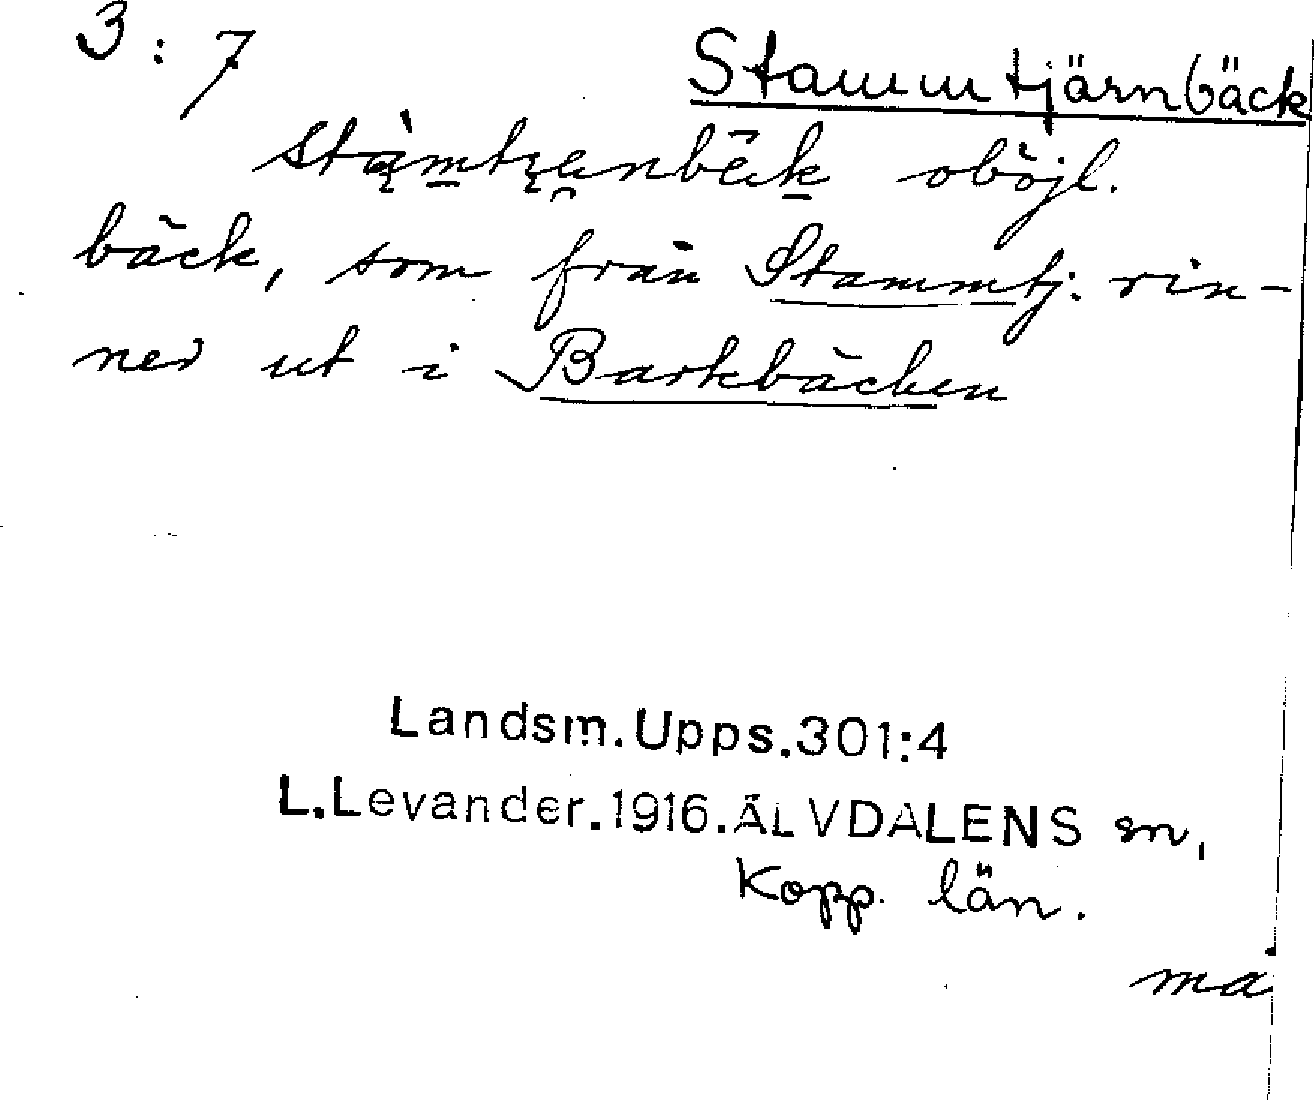 3:7
Stammtjärnbäck
oböjl.
bäck, som från Stammtj. rin-
ner ut i Barkbäcken
Landsm.Upps.301:4
L.Levander.1916.ÄLVDALENS sn,
Kopp. län.
ma